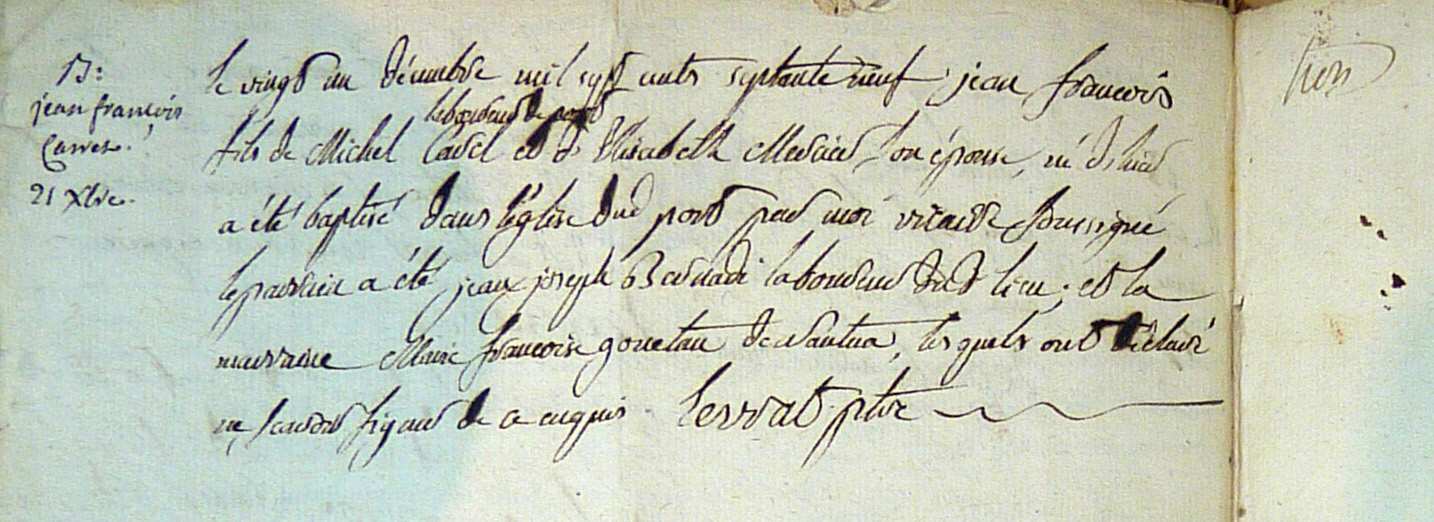 B:
jean francois
Carret.
21 Xbre.
le vingt un décembre mil sept cents septante neuf jean francois
laboureur de port
fils de Michel Carel et d'Elisabeth Mercier son épouse, né d'hier
a été baptisé dans l'église dud port par moi vicaire soussigné
le parrein a été jean joseph Bernadi laboureur dud lieu; et la
marraine Marie francoise gouetau de nantua, lesquels ont déclaré
ne scavoir signer de ce enquis Serrat ptre